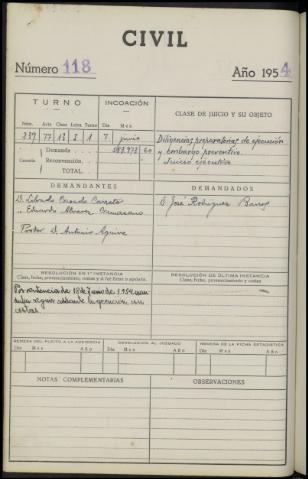 CIVIL
Número 118 Año 1954
TURNO INCOACIÓN CLASE DE JUICIO Y SU OBJETO
Núm. Acto Clase Letra Turno Día Mes
239 77 13 I 1 7 junio
Diligencias preparatorias de ejecución
y embargo preventivo.
Juicio ejecutivo
Cuantía Demanda 60
Reconvención
TOTAL
DEMANDANTES DEMANDADOS
D. Librado
" Eduardo Alvarez
D. José Rodríguez
Procr D. Antonio Aguirre
RESOLUCIÓN EN 1.ª INSTANCIA RESOLUCIÓN DE ÚLTIMA INSTANCIA
Clase, fecha, pronunciamiento, costas y si fué firme o apelada.
Clase, fecha, pronunciamiento y costas
Por sentencia de 18 de Junio de 1.954
seguir adelante la ejecución, con
costas.
REMESA DEL PLEITO A LA AUDIENCIA DEVOLUCIÓN AL JUZGADO REMESA DE LA FICHA ESTADÍSTICA
Día Mes Año Día Mes Año Día Mes Año
NOTAS COMPLEMENTARIAS OBSERVACIONES